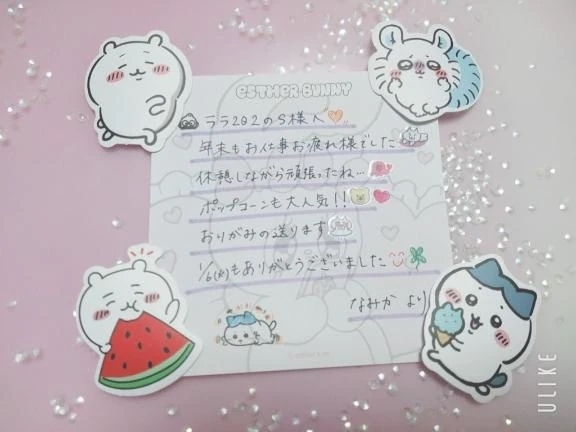 ESTHER BUNNY
ララ202のS様へ
年末もお仕事お疲れ様でした
休憩しながら頑張ったね…
ポップコーンも大人気!!
おりがみの送ります
1/6(火)もありがとうございました
なみか より
ULIKE